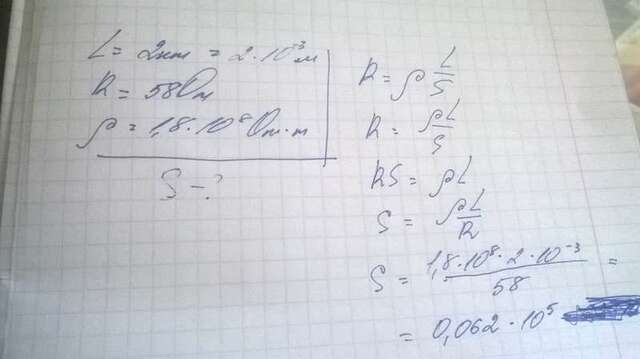 L = 2км = 2·10⁻³м
R = 58Ом
ρ = 1,8·10⁸Ом·м
S - ?
R = ρ L/S
R = ρL/S
RS = ρL
S = ρL/R
S = 1,8·10⁸·2·10⁻³/58 =
= 0,062·10⁵